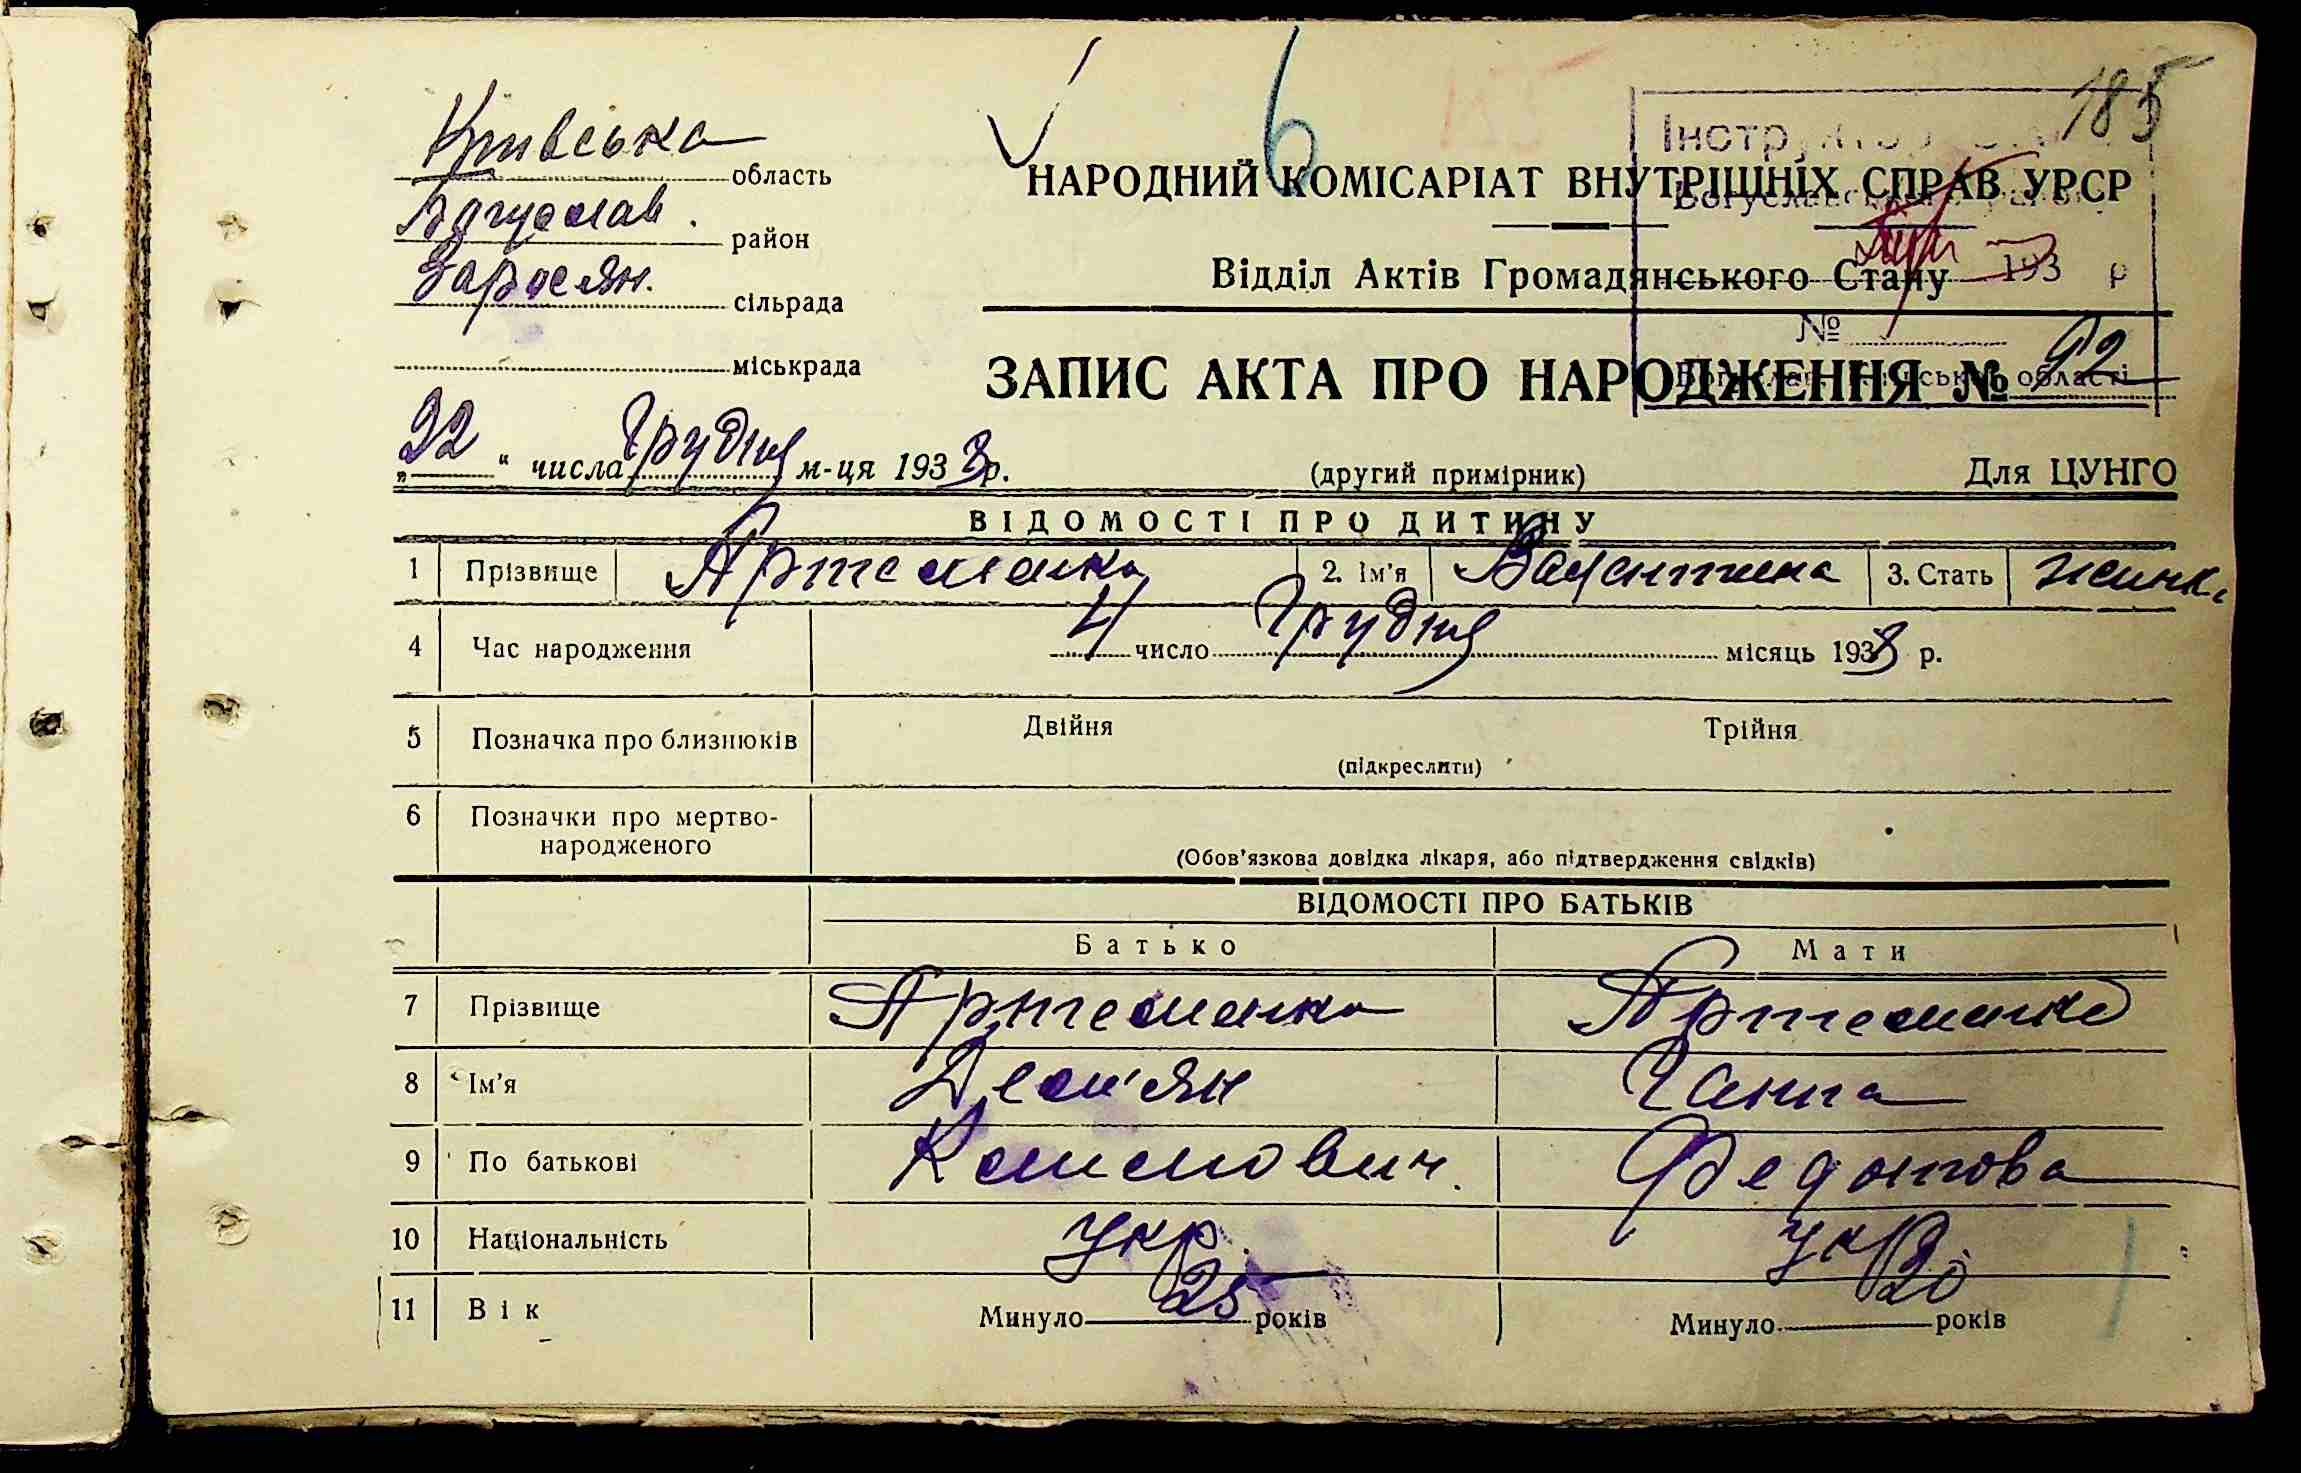 185
6
Київська область
Богуслав. район
Заросян. сільрада
міськрада
НАРОДНИЙ КОМІСАРІАТ ВНУТРІШНІХ СПРАВ УРСР
Відділ Актів Громадянського Стану
193 р
№
ЗАПИС АКТА ПРО НАРОДЖЕННЯ № 92
„22“ числа Грудня м-ця 1938р.
(другий примірник)
Для ЦУНГО
ВІДОМОСТІ ПРО ДИТИНУ
1 Прізвище Артеменко 2. Ім'я Валентина 3. Стать жіноч.
4 Час народження 4 число Грудня місяць 1938 р.
5 Позначка про близнюків Двійня Трійня
(підкреслити)
6 Позначки про мертво-
народженого
(Обов'язкова довідка лікаря, або підтвердження свідків)
ВІДОМОСТІ ПРО БАТЬКІВ
Батько Мати
7 Прізвище Артеменко Артеменко
8 Ім'я Дем'ян Ганна
9 По батькові Климович. Федотова
10 Національність укр. укр.
11 Вік Минуло 25 років Минуло 20 років